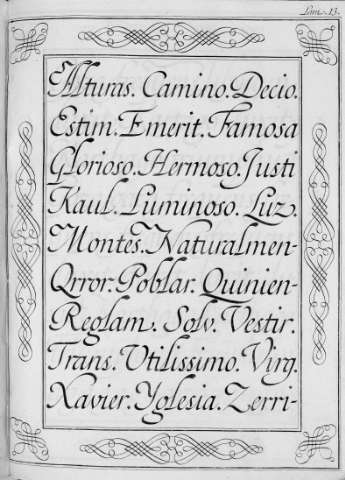 Lam. 13.
Alturas. Camino. Decio.
Estim. Emerit. Famosa
Glorioso. Hermoso. Justi
Kaul. Luminoso. Luz.
Montes. Naturalmen-
Qrror. Poblar. Quinien-
Reglam. Solv. Vestir.
Trans. Utilissimo. Virg.
Xavier. Yglesia. Zerri-